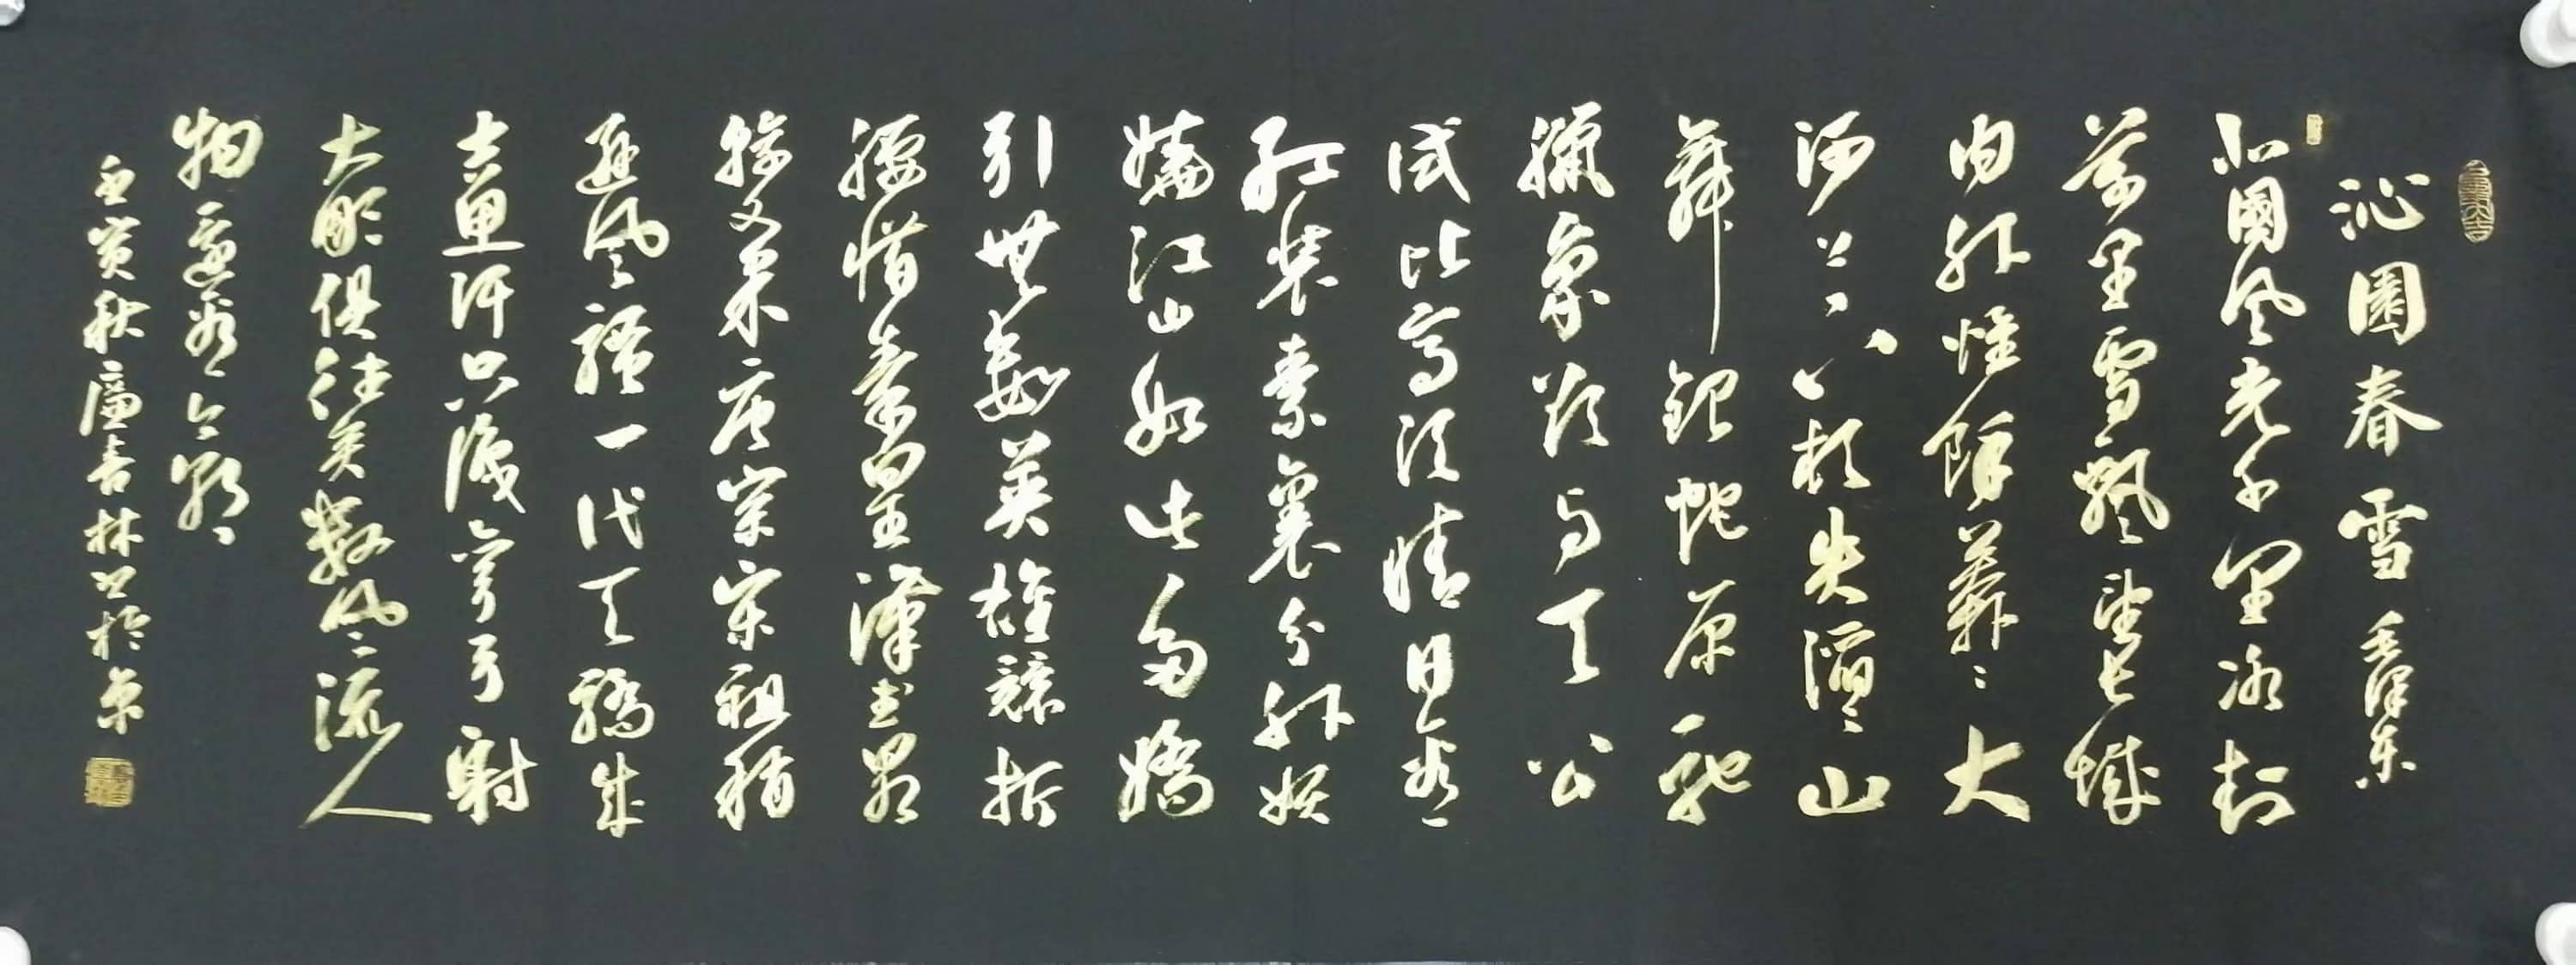 沁園春 雪 毛澤東
北國風光千里冰封
萬里雪飄望長城
内外惟餘莽々大
河上下頓失滔々山
舞銀蛇原馳
臘象欲与天公
試比高須晴日看
紅裝素裹分外妖
嬈江山如此多嬌
引無數英雄競折
腰惜秦皇漢武略
輸文采唐宗宋祖稍
遜風騷一代天驕成
吉思汗只識彎弓射
大雕俱往矣數風流人
物還看今朝
壬寅秋廉喜林書於京